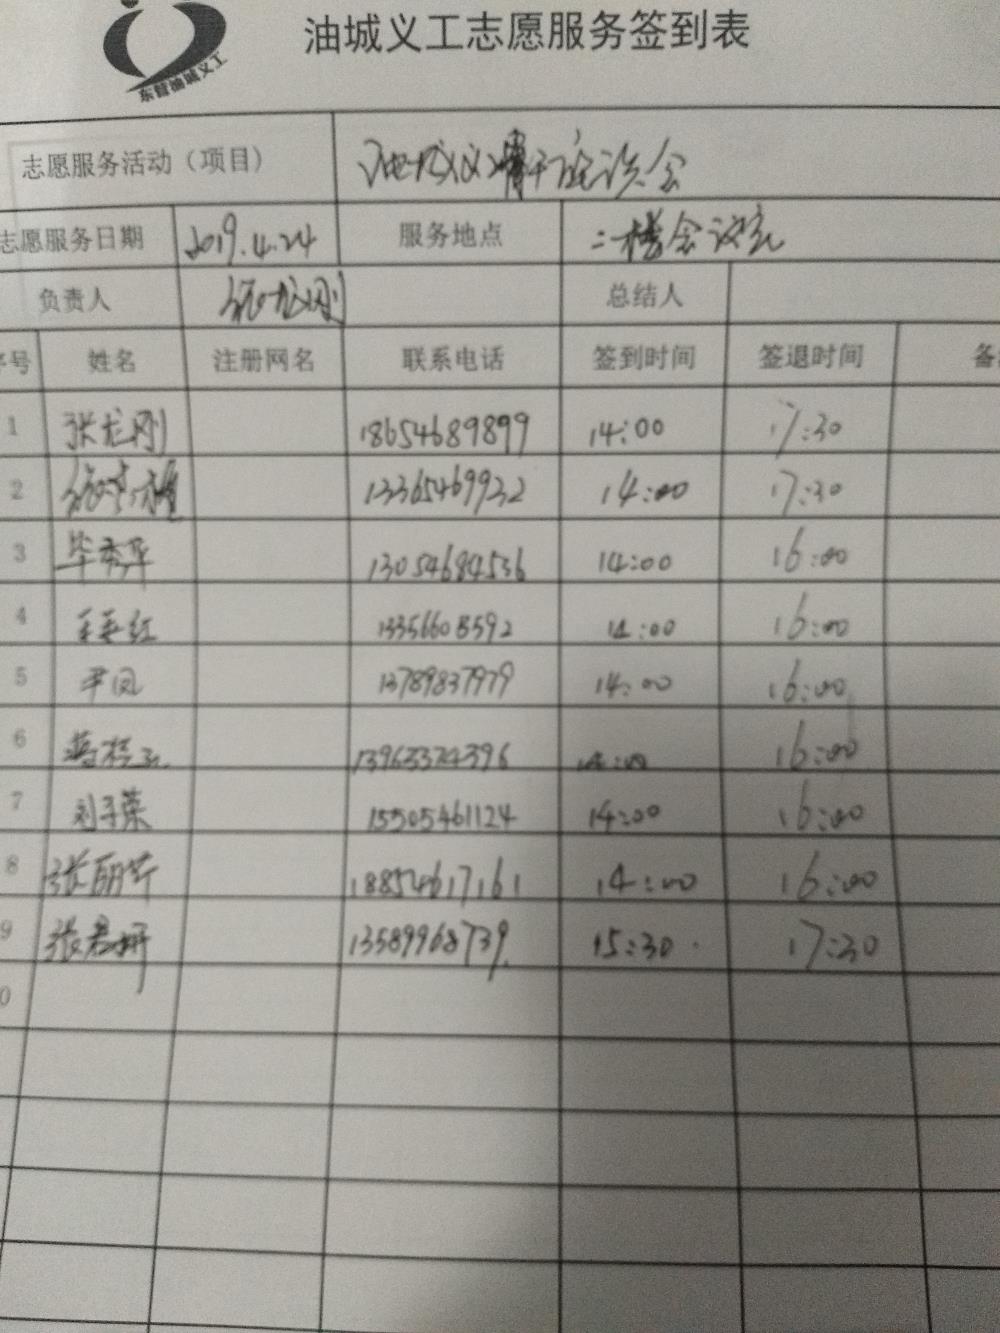 油城义工志愿服务签到表
东营油城义工
志愿服务活动（项目） 油城义工骨干座谈会
志愿服务日期 2019.4.24 服务地点 二楼会议室
负责人 张龙刚 总结人
序号 姓名 注册网名 联系电话 签到时间 签退时间 备
1 张龙刚 18654689899 14:00 17:30
2 13365469932 14:00 17:30
3 毕秀华 13054684536 14:00 16:00
4 王英红 13356608592 14:00 16:00
5 尹凤 13789837979 14:00 16:00
6 16:00
7 刘子荣 15505461124 14:00 16:00
8 张丽芹 18854617161 14:00 16:00
9 张君妍 13589968739 15:30 17:30
0